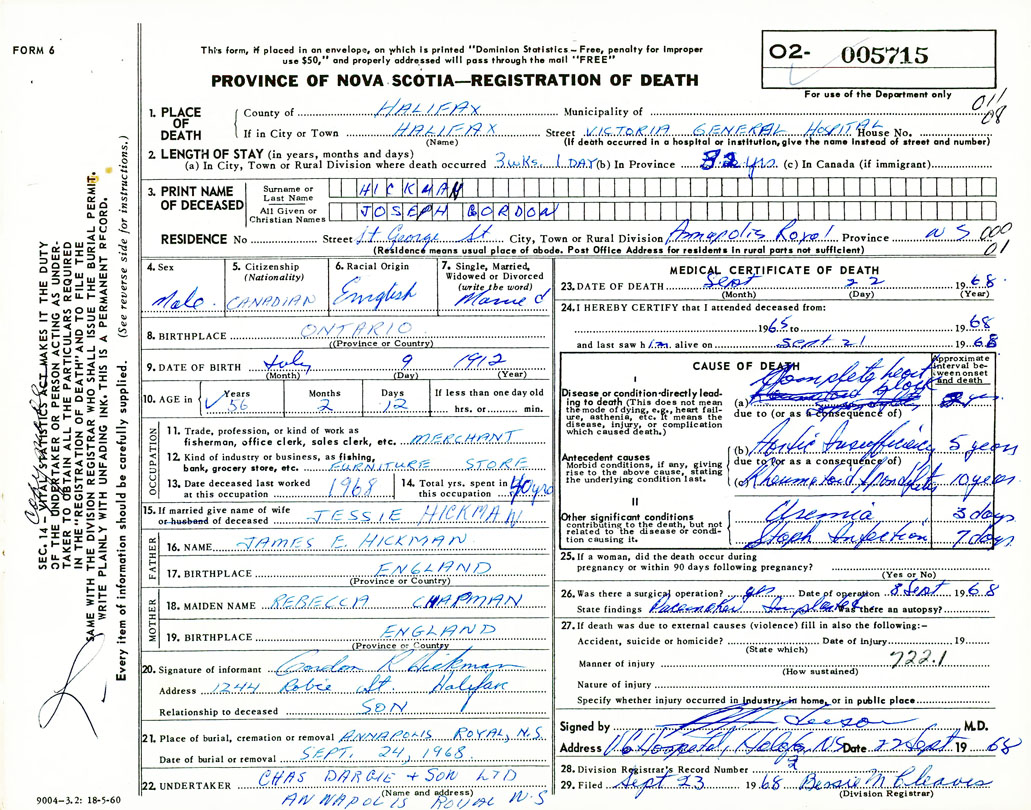 FORM 6
This form, if placed in an envelope, on which is printed "Dominion Statistics – Free, penalty for improper
use $50," and properly addressed will pass through the mail "FREE"
PROVINCE OF NOVA SCOTIA—REGISTRATION OF DEATH
02- 005715
For use of the Department only
011
08
1. PLACE OF DEATH
County of HALIFAX Municipality of
If in City or Town HALIFAX Street VICTORIA GENERAL HOSPITAL House No.
(Name) (If death occurred in a hospital or institution, give the name instead of street and number)
2. LENGTH OF STAY (in years, months and days)
(a) In City, Town or Rural Division where death occurred 3 wks. 1 DAY (b) In Province 32 yrs. (c) In Canada (if immigrant)
3. PRINT NAME OF DECEASED
Surname or Last Name HICKMAN
All Given or Christian Names JOSEPH GORDON
RESIDENCE No Street St George St. City, Town or Rural Division Annapolis Royal Province N S 000
01
(Residence means usual place of abode. Post Office Address for residents in rural parts not sufficient)
4. Sex Male
5. Citizenship (Nationality) CANADIAN
6. Racial Origin English
7. Single, Married, Widowed or Divorced (write the word) Married
8. BIRTHPLACE ONTARIO
(Province or Country)
9. DATE OF BIRTH July 9 1912
(Month) (Day) (Year)
10. AGE in Years 56 Months 2 Days 12 If less than one day old hrs. or min.
OCCUPATION
11. Trade, profession, or kind of work as fisherman, office clerk, sales clerk, etc. MERCHANT
12. Kind of industry or business, as fishing, bank, grocery store, etc. FURNITURE STORE
13. Date deceased last worked at this occupation 1968
14. Total yrs. spent in this occupation 40 yrs
15. If married give name of wife or husband of deceased JESSIE HICKMAN
FATHER
16. NAME JAMES E. HICKMAN
17. BIRTHPLACE ENGLAND
(Province or Country)
MOTHER
18. MAIDEN NAME REBECCA CHAPMAN
19. BIRTHPLACE ENGLAND
(Province or Country
20. Signature of informant Gordon R Hickman
Address 1244 Robie St. Halifax
Relationship to deceased SON
21. Place of burial, cremation or removal ANNAPOLIS ROYAL, N.S.
Date of burial or removal SEPT. 24, 1968
22. UNDERTAKER CHAS DARGIE + SON LTD
(Name and address)
ANNAPOLIS ROYAL N.S
9004–3.2: 18-5-60
MEDICAL CERTIFICATE OF DEATH
23. DATE OF DEATH Sept 22 1968
(Month) (Day) (Year)
24. I HEREBY CERTIFY that I attended deceased from:
1965 to 1968
and last saw him alive on Sept 21 1968
CAUSE OF DEATH
Approximate interval between onset and death
I
Disease or condition directly leading to death (This does not mean the mode of dying, e.g., heart failure, asthenia, etc. It means the disease, injury, or complication which caused death.)
(a) Complete heart block years
due to (or as a consequence of)
Antecedent causes
Morbid conditions, if any, giving rise to the above cause, stating the underlying condition last.
(b) Aortic Insufficiency 5 years
due to (or as a consequence of)
(c) Rheumatoid Spondylitis 10 years
II
Other significant conditions contributing to the death, but not related to the disease or condition causing it.
Uremia 3 days
Staph Infection 7 days
25. If a woman, did the death occur during pregnancy or within 90 days following pregnancy?
(Yes or No)
26. Was there a surgical operation? yes Date of operation 8 Sept 1968
State findings Pacemaker Implanted Was there an autopsy?
27. If death was due to external causes (violence) fill in also the following:–
Accident, suicide or homicide? Date of injury 19
(State which)
Manner of injury 722.1
(How sustained)
Nature of injury
Specify whether injury occurred in Industry, in home, or in public place
Signed by M.D.
Address V G Hospital, Halifax, N.S Date 22 Sept 1968
28. Division Registrar's Record Number
29. Filed Sept 23 1968 Bessie M Cleaves
(Division Registrar)
SEC. 14 VITAL STATISTICS ACT MAKES IT THE DUTY
OF THE UNDERTAKER OR PERSON ACTING AS UNDERTAKER TO OBTAIN ALL THE PARTICULARS REQUIRED
IN THE "REGISTRATION OF DEATH" AND TO FILE THE
SAME WITH THE DIVISION REGISTRAR WHO SHALL ISSUE THE BURIAL PERMIT.
WRITE PLAINLY WITH UNFADING INK. THIS IS A PERMANENT RECORD.
Every item of information should be carefully supplied. (See reverse side for instructions.)